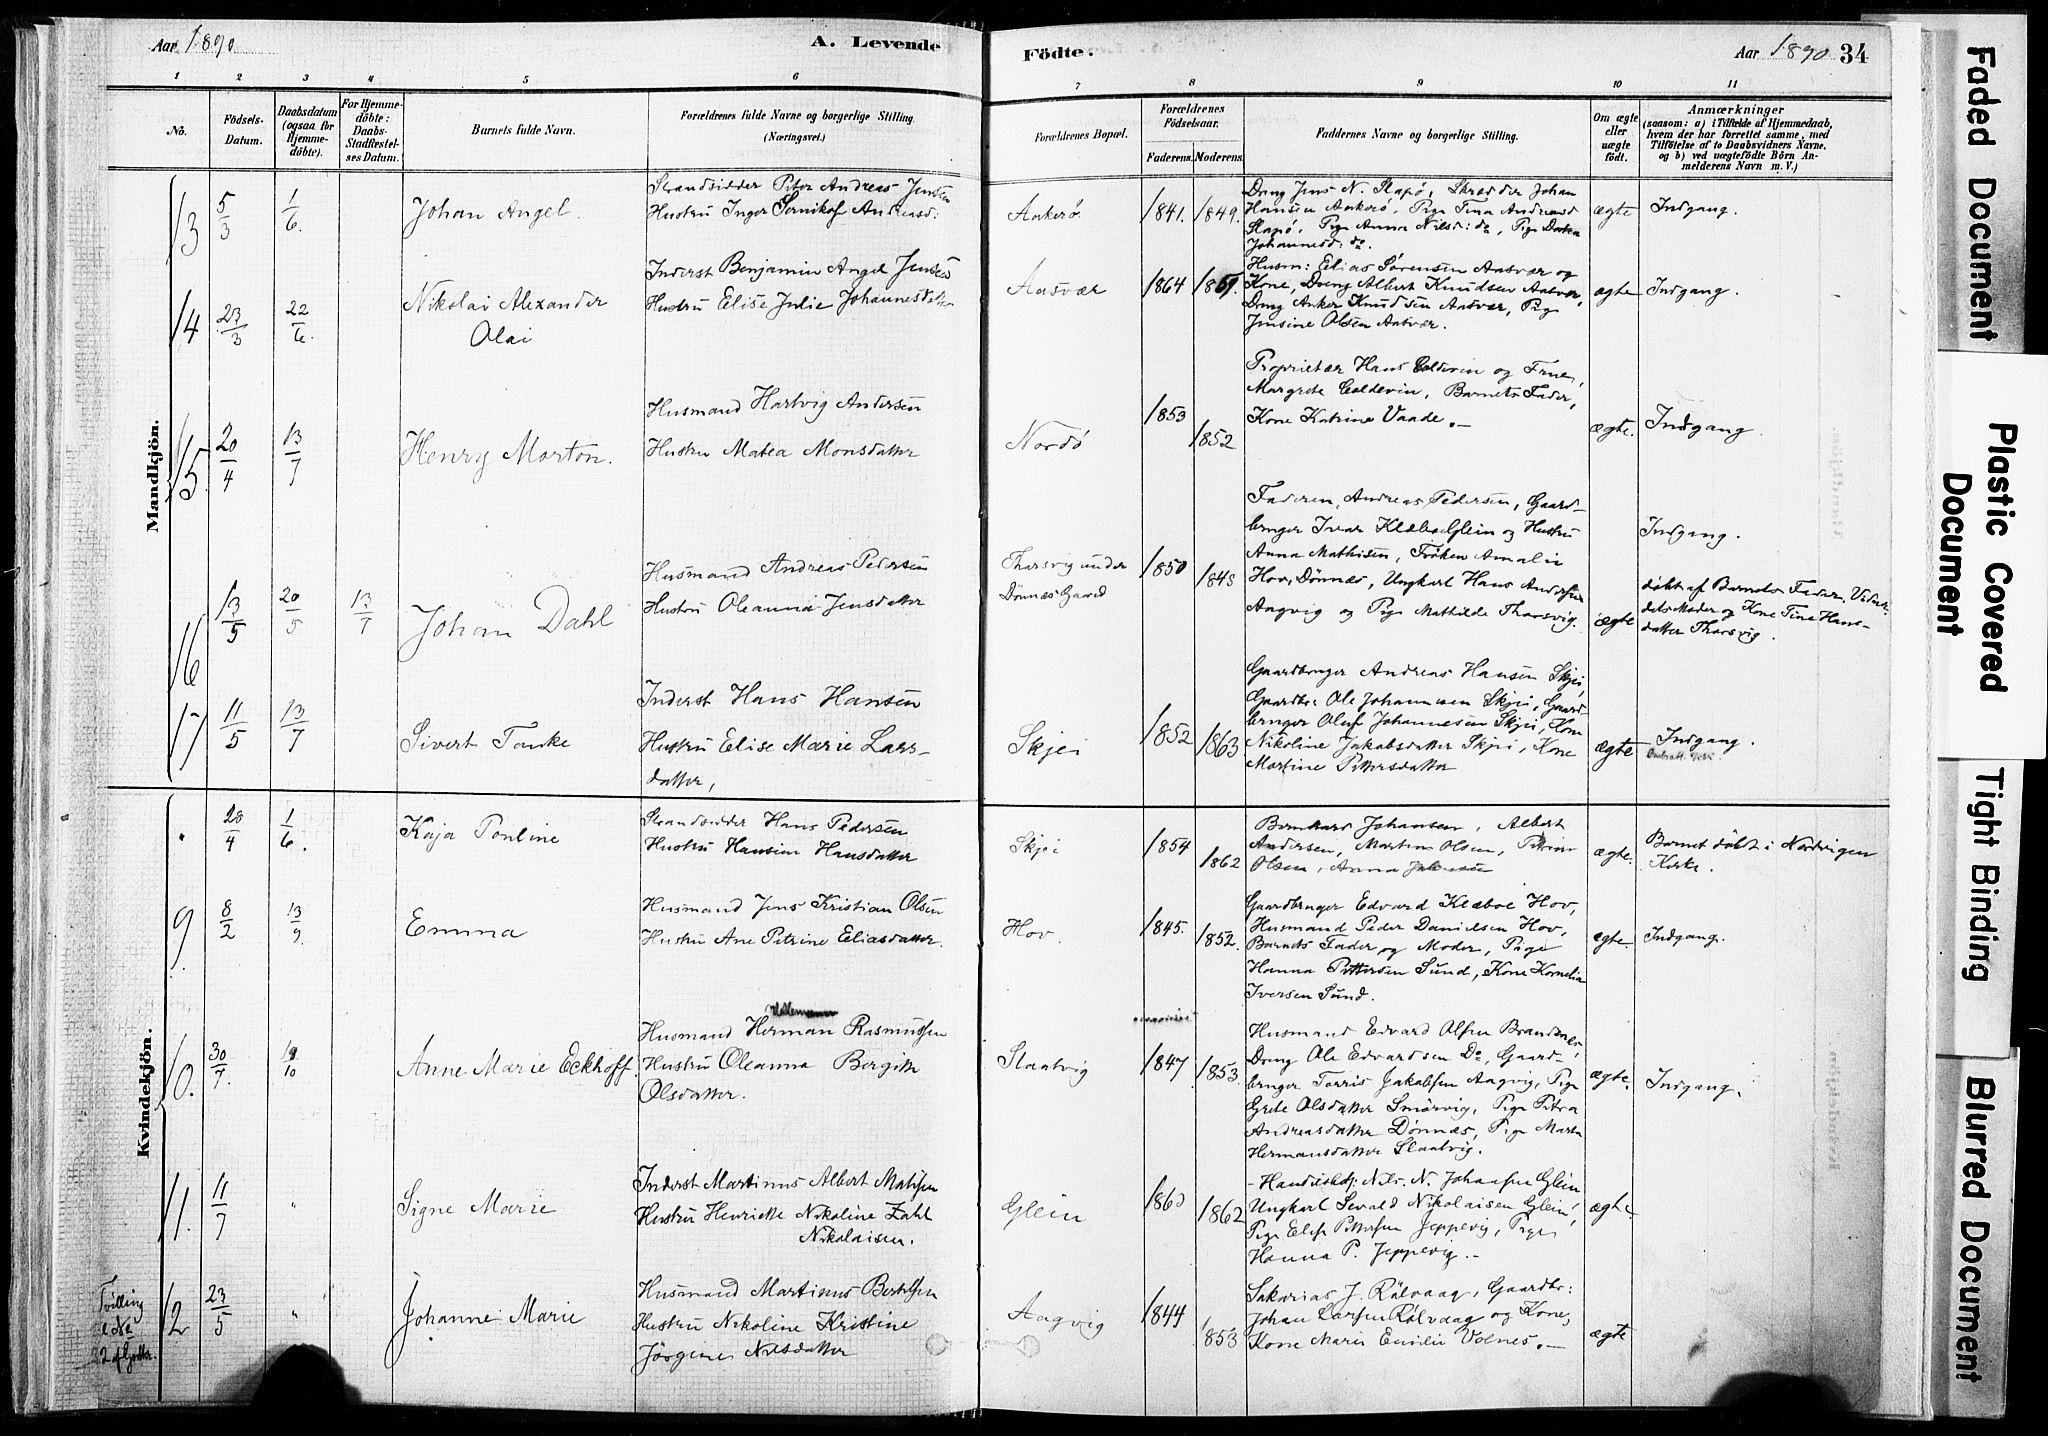 Aar 1890
A. Levende
Födte.
Aar 1890 34
1 2 3 4 5 6 7 8 9 10 11
No.
Födsels-
Datum.
Daabsdatum
(ogsaa for
Hjemme-
döbte).
For Hjemme-
döbte:
Daabs-
Stadfæstel-
ses Datum.
Barnets fulde Navn.
Forældrenes fulde Navne og borgerlige Stilling.
(Næringsvei.)
Forældrenes Bopæl.
Forældrenes
Födselsaar.
Faderens. Moderens.
Faddernes Navne og borgerlige Stilling.
Om ægte
eller
uægte
födt.
Anmærkninger
(saasom: a) i Tilfælde af Hjemmedaab,
hvem der har forrettet samme, med
Tilföielse af to Daabsvidners Navne,
og b) ved uægtefödte Börn An-
melderens Navn m. V.)
Mandkjön.
13 5/3 1/6 Johan Angel.
Strandsidder Peter Andreas Jensen
Hustru Inger Andreasd:
Aakerø 1841. 1849.
Dreng Jens N. Slapø, Skrædder Johan
Hansen Aakerø, Pige Tina Andreasd
Slapø, Pige Anna Nilsd: do, Pige
Johannesd: do.
ægte Indgang.
14 23/3 22/6 Nikolai Alexander
Olai
Inderst Benjamin Angel Jensen
Hustru Elise Julie Johannesdatter
Aasvær 1864
Husm: Elias Sørensen Aasvær og
Kone, Dreng Albert Knudsen Aasvær,
Dreng Anker Knudsen Aasvær, Pige
Jensine Olsen Aasvær.
ægte Indgang.
15 20/4 13/7 Henry Morton.
Husmand Hartvig Andersen
Hustru Matea Monsdatter
Nordø 1853 1852
Proprietær Hans Coldevin og Frue,
Margrete Coldevin, Barnets Fader,
Kone Katrine Vaade.
ægte. Indgang.
16 13/5 20/5 13/7 Johan Dahl
Husmand Andreas Pedersen
Hustru Oleanna Jensdatter
Tharsvig under
Dønnæs Gaard
1850 1848
Faderen, Andreas Pedersen, Gaard-
bruger Ivar Klæboe Glein og Hustru
Anna Mathisen, Frøken Amalie
Hov, Dønnæs, Ungkarl Hans Andersen
Aagvig og Pige Mathilde Tharsvig.
ægte
Indgang.
døbt af Barnets Fader,
Moder og Kone Tine Hans-
datter Tharsvig.
17 11/5 13/7 Sivert Tanke
Inderst Hans Hansen
Hustru Elise Marie Lars-
datter,
Skjei 1852 1863
Gaardbruger Andreas Hansen Skjei,
Gaardbr: Ole Johannesen Skjei, Gaard-
bruger Oluf Johannesen Skjei, Kone
Nikoline Jakobsdatter Skjei, Kone
Martine Pettersdatter
ægte Indgang.
Kvindekjön.
" 28/4 1/6. Kaja Pouline
Strandsidder Hans Pedersen
Hustru Hansine Hansdatter
Skjei 1854 1862
Bernhard Johansen, Albert
Andersen, Martin Olsen,
Olsen, Anna
ægte. Barnet døbt i Nordvigen
Kirke.
9 8/2 13/9. Emma
Husmand Jens Kristian Olsen
Hustru Ane Petrine Eliasdatter.
Hov. 1845. 1852.
Gaardbruger Edvard Klæboe Hov,
Husmand Peder Danielsen Hov,
Barnets Fader og Moder, Pige
Hanna Pettersen Sund, Kone Kornelia
Iversen Sund.
ægte Indgang.
10. 30/7. Anne Marie Eckhoff
Husmand Herman Rasmussen
Hustru Oleanna Bergitte
Olsdatter.
Slaatvig 1847 1853.
Husmand Edvard Olsen
Dreng Ole Edvardsen Do, Gaard-
bruger Torris Jakobsen Aagvig, Pige
Grete Olsdatter Smörvig, Pige Petra
Andreasdatter Dønnæs, Pige
Hermansdatter Slaatvig.
ægte. Indgang.
11. 11/7 " Signe Marie
Inderst Martinus Albert Matisen
Hustru Henriette Nikoline Zahl
Nikolaisen.
Glein 1862
Nils N. Johansen Glein
Ungkarl Sevald Nikolaisen Glein,
Pige Elise Pettersen Jeppevig, Pige
Hanna P. Jeppevig.
ægte.
Tvilling
12 23/5 " Johanne Marie
Husmand Martinus Bertelsen
Hustru Nikoline Kristine
Jørgine Nilsdatter
Aagvig 1844 1853
Sakarias J. Rölvaag, Gaardbr:
Johan Larsen Rölvaag og Kone,
Kone Marie Emilie Volnes.
ægte
Faded Document
Plastic Covered
Document
Tight Binding
Blurred Document